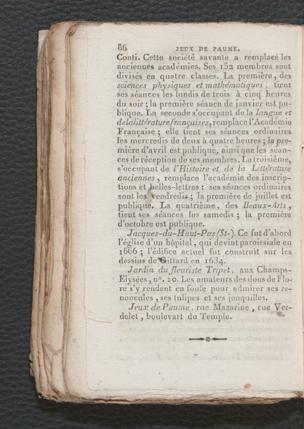 86 JEUX DE PAUME.
Conti. Cette société savante a remplacé les
anciennes académies. Ses 152 membres sont
divisés en quatre classes. La première, des
sciences physiques et mathématiques, tient
ses séances les lundis de trois à cinq heures
du soir; la première séance de janvier est pu-
blique. La seconde s'occupant de la langue et
de la littérature françaises, remplace l'Académie
Française; elle tient ses séances ordinaires
les mercredis de deux à quatre heures; la pre-
mière d'avril est publique, ainsi que les séan-
ces de réception de ses membres. La troisième,
s'occupant de l'Histoire et de la Littérature
anciennes, remplace l'académie des inscrip-
tions et belles-lettres: ses séances ordinaires
sont les vendredis; la première de juillet est
publique. La quatrième, des Beaux-Arts,
tient ses séances les samedis; la première
d'octobre est publique.
Jacques-du-Haut-Pas (St-). Ce fut d'abord
l'église d'un hôpital, qui devint paroissiale en
1666; l'édifice actuel fut construit sur les
dessins de Gittard en 1634.
Jardin du fleuriste Tripet, aux Champs-
Elysées, n°. 20. Les amateurs des dons de Flo-
re s'y rendent en foule pour admirer ses re-
noncules, ses tulipes et ses jonquilles.
Jeux de Paume, rue Mazarine, rue Ver-
delet, boulevart du Temple.